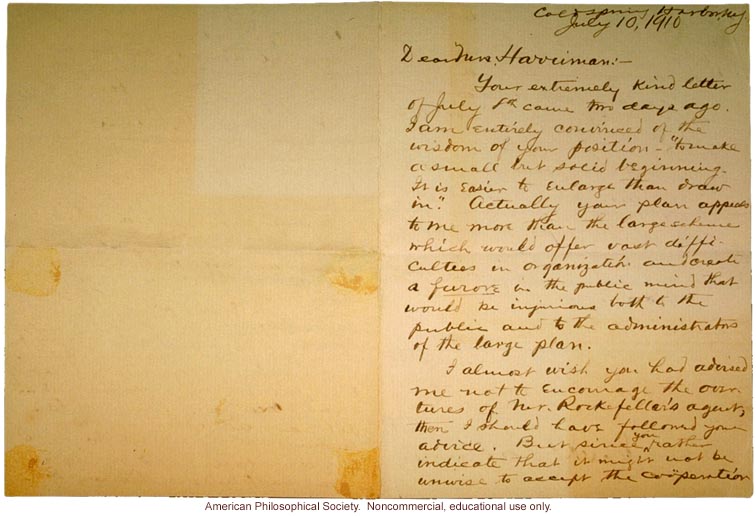 Cold Spring Harbor, NY
July 10, 1910
Dear Mrs. Harriman:-
Your extremely kind letter
of July 8th came two days ago.
I am entirely convinced of the
wisdom of your position - "to make
a small but solid beginning.
It is easier to enlarge than draw
in." Actually your plan appeals
to me more than the large scheme
which would offer vast diffi-
culties in organization and create
a furore in the public mind that
would be injurious both to the
public and to the administrators
of the large plan.
I almost wish you had advised
me not to encourage the over-
tures of Mr. Rockefeller's agent,
then I should have followed your
advice. But since you rather
indicate that it might not be
unwise to accept the coöperation
American Philosophical Society. Noncommercial, educational use only.